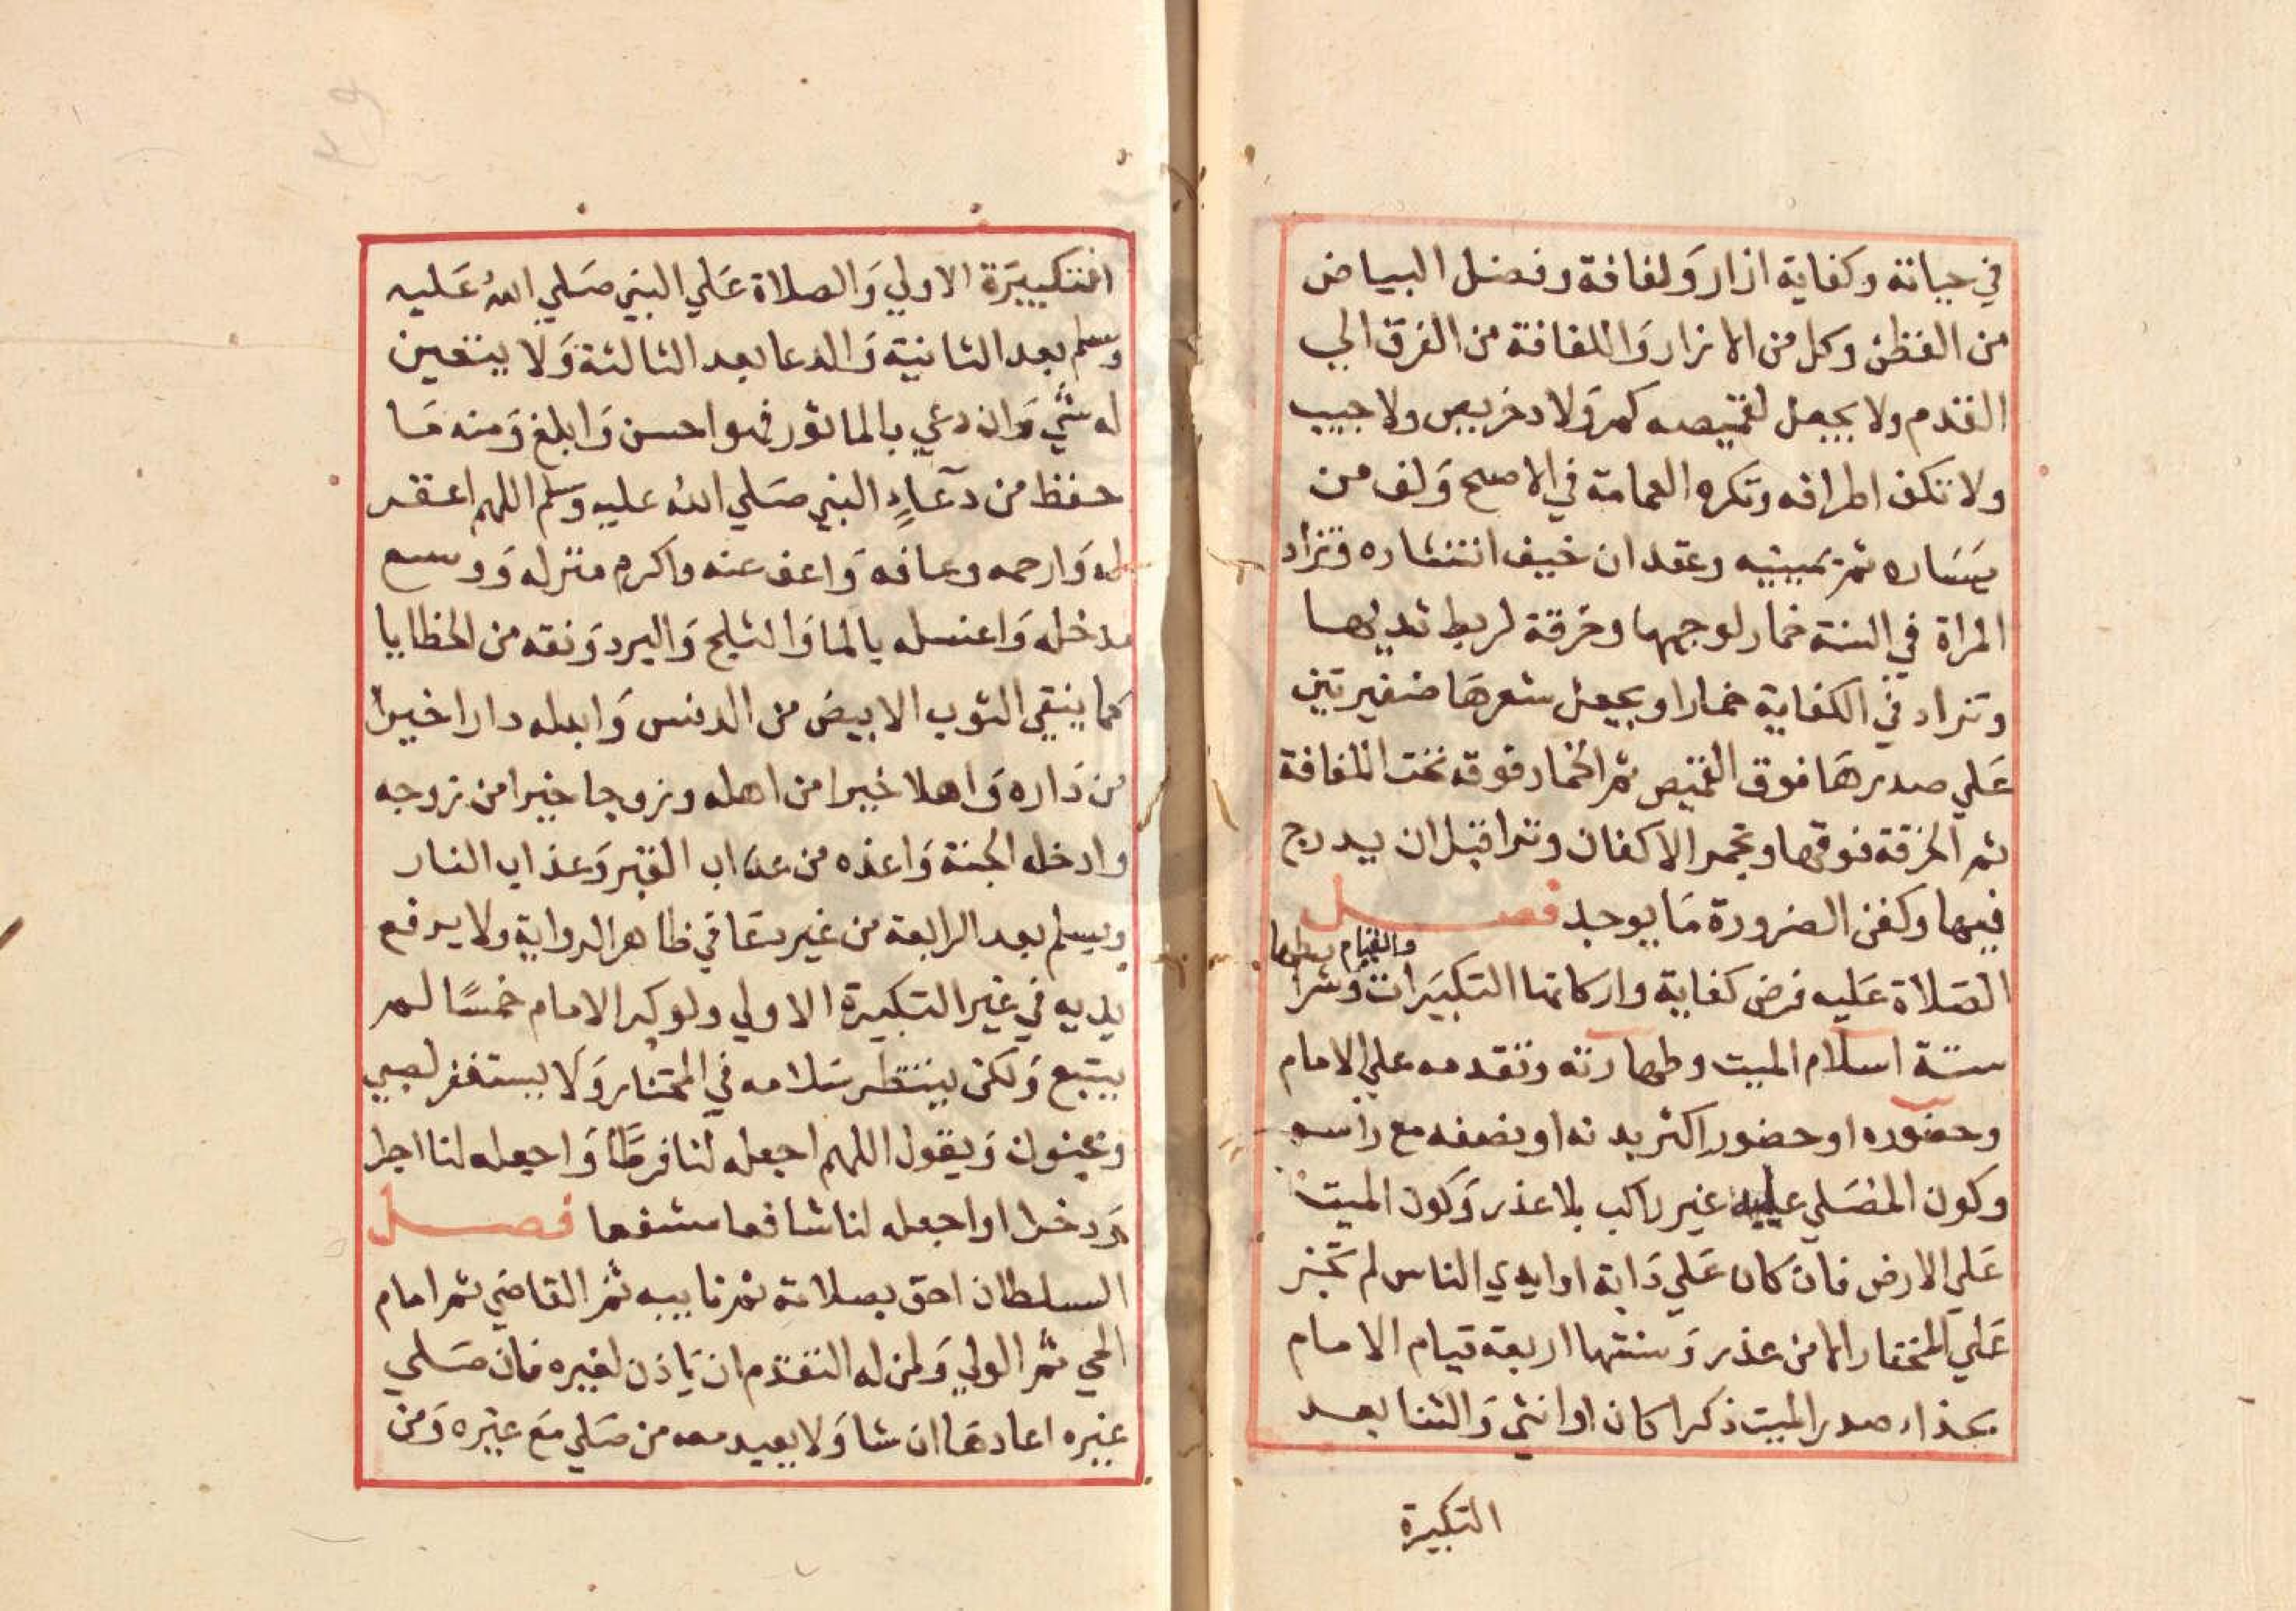 في حياته وكفاية ازار ولفافة وفضل البياض
من القطن وكل من الازار واللفافة من القرق الي
القدم ولا يجعل لقميصه كم ولا دخريص ولا جيب
ولا تكف اطرافه وتكره العمامة في الاصح ولف من
يساره ثم يمينه وعقد ان خيف انتشاره وتزاد
المراة في السنة خمار لوجهها وخرقة لربط ثدييها
وتزاد في الكفاية خمارا ويجعل شعرها ضفيرتين
علي صدرها فوق القميص ثم الخمار فوقه تحت اللفافة
ثم الخرقة فوقها وتجمر الاكفان وترا قبل ان يدرج
فيها وكفن الضرورة ما يوجد فصل
الصلاة عليه فرض كفاية واركانها التكبيرات والقيام وشرا يطها
ستة اسلام الميت وطهارته وتقدمه علي الامام
وحضوره او حضور اكثر بدنه او نصفه مع راسه
وكون المصلي عليه غير راكب بلا عذر وكون الميت
علي الارض فان كان علي دابة او ايدي الناس لم تجز
علي المختار الا من عذر وسننها اربعة قيام الامام
بحذاء صدر الميت ذكرا كان او انثي والثنا بعد
التكبيرة
التكبيرة الاولي والصلاة علي النبي صلي الله عليه
وسلم بعد الثانية والدعا بعد الثالثة ولا يتعين
له شي وان دعي بالماثور فهو احسن وابلغ ومنه ما
حفظ من دعاء النبي صلي الله عليه وسلم اللهم اغفر
له وارحمه وعافه واعف عنه واكرم منزله ووسع
مدخله واغسله بالما والثلج والبرد ونقه من الخطايا
كما ينقي الثوب الابيض من الدنس وابدله دارا خيرا
من داره واهلا خيرا من اهله وزوجا خيرا من زوجه
وادخله الجنة واعذه من عذاب القبر وعذاب النار
ويسلم بعد الرابعة من غير دعا في ظاهر الرواية ولا يرفع
يديه في غير التكبيرة الاولي ولو كبر الامام خمسا لم
يتبع ولكن ينتظر سلامه في المختار ولا يستغفر لصبي
ومجنون ويقول اللهم اجعله لنا فرطا واجعله لنا اجرا
وذخرا واجعله لنا شافعا مشفعا فصل
السلطان احق بصلاته ثم نايبه ثم القاضي ثم امام
الحي ثم الولي ولمن له التقدم ان ياذن لغيره فان صلي
غيره اعادها ان شا ولا يعيد معه من صلي مع غيره ومن